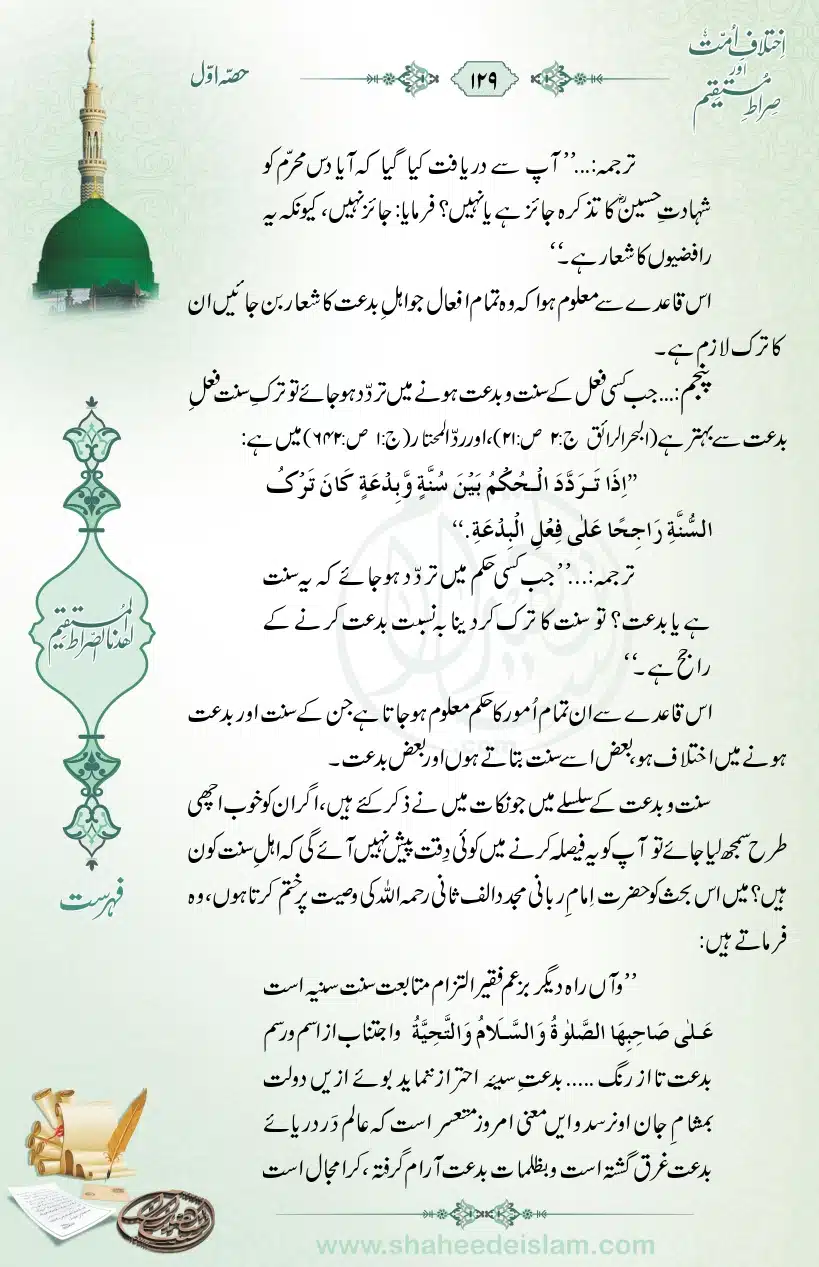 اِختلافِ اُمّت
اور
صِراطِ مُستقیم
۱۲۹
حصّہ اوّل
ترجمہ:...’’آپ سے دریافت کیا گیا کہ آیا دس محرّم کو
شہادتِ حسینؓ کا تذکرہ جائز ہے یا نہیں؟ فرمایا: جائز نہیں، کیونکہ یہ
رافضیوں کا شعار ہے۔‘‘
اس قاعدے سے معلوم ہوا کہ وہ تمام افعال جو اہلِ بدعت کا شعار بن جائیں ان
کا ترک لازم ہے۔
پنجم:...جب کسی فعل کے سنت و بدعت ہونے میں تردّد ہوجائے تو ترکِ سنت فعلِ
بدعت سے بہتر ہے (البحر الرائق ج:۲ ص:۲۱)، اور ردّ المحتار (ج:۱ ص:۶۴۲) میں ہے:
’’اِذَا تَـرَدَّدَ الْـحُكْمُ بَيْنَ سُنَّةٍ وَّبِدْعَةٍ كَانَ تَرْكُ
السُّنَّةِ رَاجِحًا عَلٰى فِعْلِ الْبِدْعَةِ.‘‘
ترجمہ:...’’جب کسی حکم میں تردّد ہوجائے کہ یہ سنت
ہے یا بدعت؟ تو سنت کا ترک کردینا بہ نسبت بدعت کرنے کے
راجح ہے۔‘‘
اس قاعدے سے ان تمام اُمور کا حکم معلوم ہوجاتا ہے جن کے سنت اور بدعت
ہونے میں اختلاف ہو، بعض اسے سنت بتاتے ہوں اور بعض بدعت۔
سنت و بدعت کے سلسلے میں جو نکات میں نے ذکر کئے ہیں، اگر ان کو خوب اچھی
طرح سمجھ لیا جائے تو آپ کو یہ فیصلہ کرنے میں کوئی دِقت پیش نہیں آئے گی کہ اہلِ سنت کون
ہیں؟ میں اس بحث کو حضرت اِمامِ ربانی مجدد الف ثانی رحمہ اللہ کی وصیت پر ختم کرتا ہوں، وہ
فرماتے ہیں:
’’وآں راہ دیگر بزعم فقیر التزام متابعت سنت سنیہ است
عَـلٰى صَاحِبِهَا الصَّلٰوةُ وَالسَّـلَامُ وَالتَّحِيَّةُ واجتناب از اسم ورسم
بدعت تا از رنگ ..... بدعتِ سیئہ احتراز ننماید بوئے ازیں دولت
بمشامِ جان اونرسد وایں معنی امروز متعسر است کہ عالم دَر دریائے
بدعت غرق گشتہ است وبظلمات بدعت آرام گرفتہ، کرا مجال است
اِهْدِنَا الصِّرَاطَ الْمُسْتَقِيْمَ
فہرست
www.shaheedeislam.com